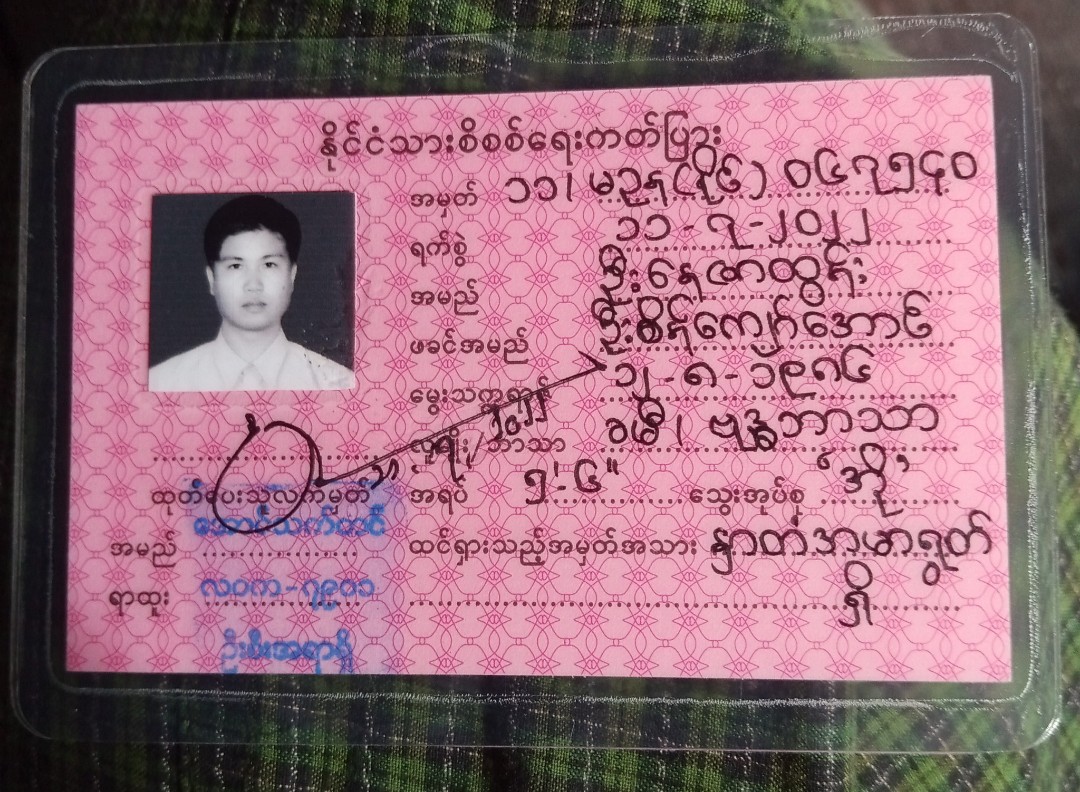 နိုင်ငံသားစိစစ်ရေးကတ်ပြား
အမှတ် ၁၁၊ မဥန(နိုင်) ၀၄၇၅၄၀
ရက်စွဲ ၁၁-၇-၂၀၂၂
အမည် ဦးနေဇာထွန်း
ဖခင်အမည် ဦးစိန်ကျော်အောင်
မွေးသက္ကရာဇ် ၁၂-၈-၁၉၈၆
လူမျိုး/ဘာသာ ခမီ၊ ဗုဒ္ဓဘာသာ
အရပ် ၅'.၆" သွေးအုပ်စု 'အို'
ထုတ်ပေးသူလက်မှတ်
ထင်ရှားသည့်အမှတ်အသား နှာတံဘယာရွတ်
ရှိ
အမည် အောင်သက်ဝင်း
ရာထူး လဝက-၇၉၀၁
ဦးစီးအရာရှိ